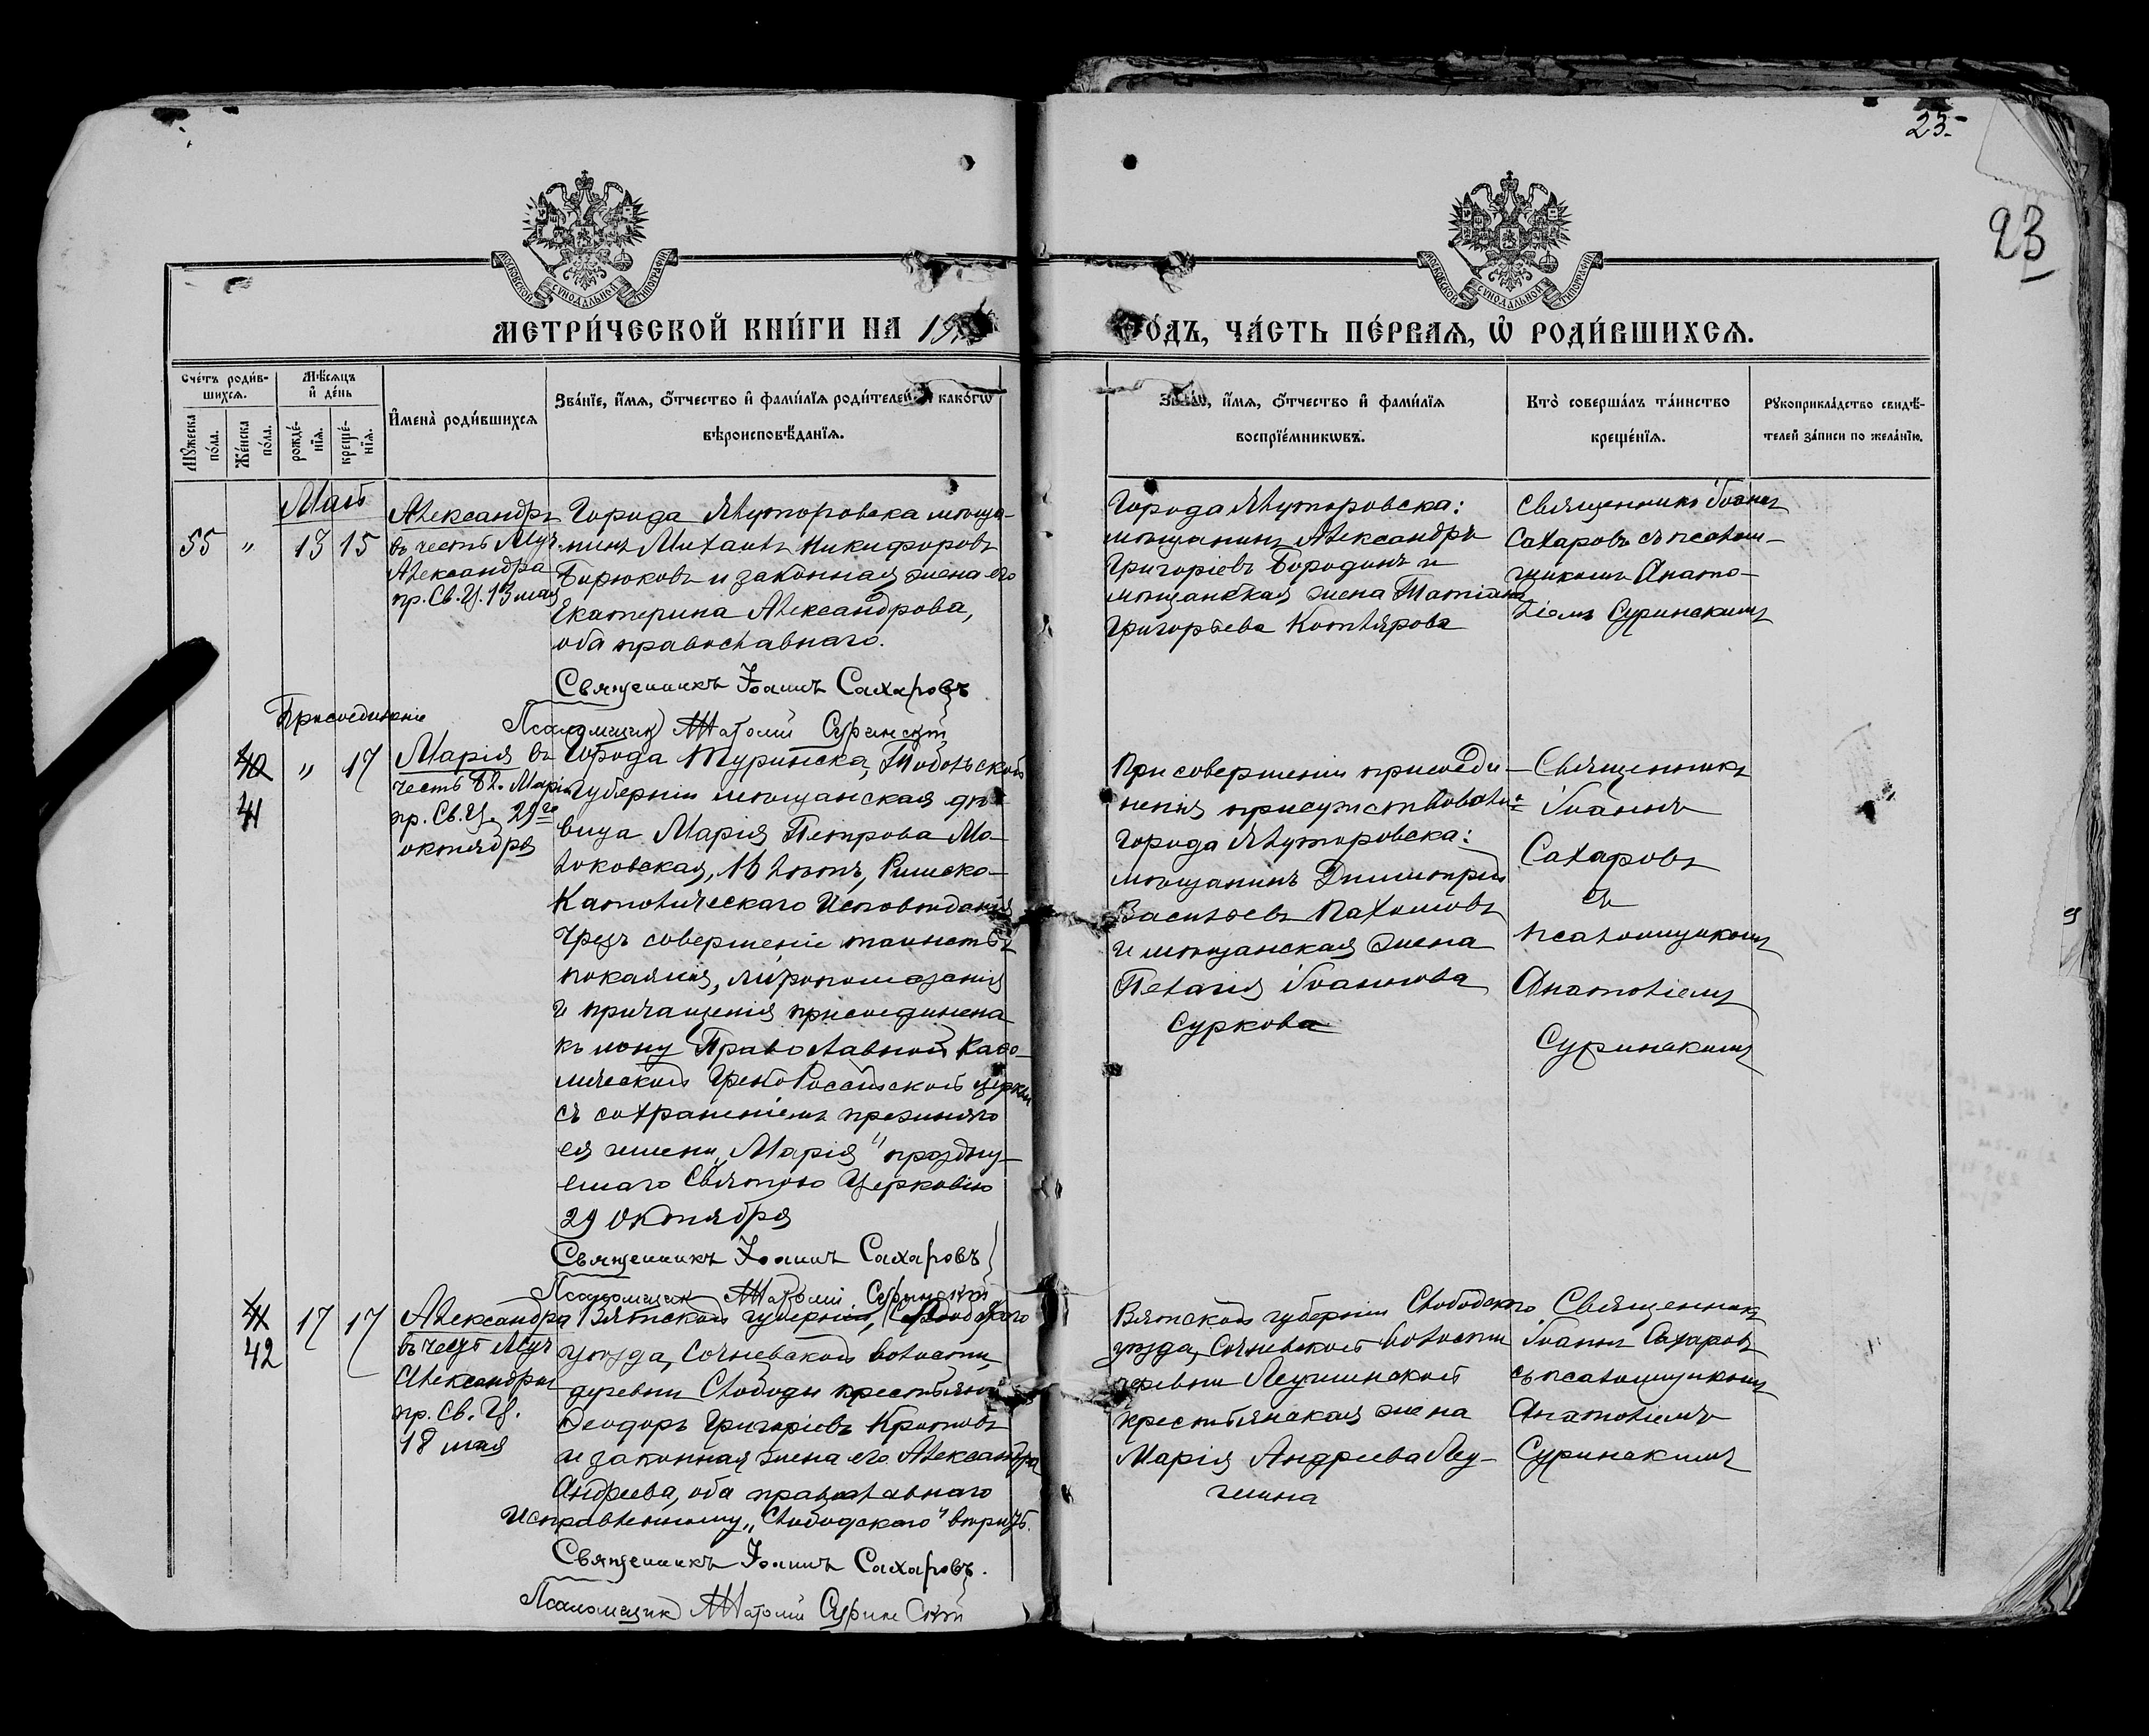 23.
23
МОСКОВСКОЙ СѴНОДАЛЬНОЙ ТИПОГРАФІИ
МОСКОВСКОЙ СѴНОДАЛЬНОЙ ТИПОГРАФІИ
МЕТРИ́ЧЕСКОЙ КНИ́ГИ НА 19
ОДЪ, ЧА́СТЬ ПЕ́РВАЯ, Ѡ҆ РОДИ́ВШИХСЯ.
Сче́тъ роди́в-
шихся.
Мѣ́сяцъ
и҆ де́нь
Мꙋ́жеска по́ла.
Же́нска по́ла.
рожде́-
нїя.
креще́-
нїя.
И҆мена̀ роди́вшихся
Зва́нїе, и҆́мя, ѻ҆́тчество и҆ фами́лїя роди́телей и҆ како́гѡ
вѣроисповѣ́данїя.
Зва́нїе, и҆́мя, ѻ҆́тчество и҆ фами́лїя
воспрїе́мникѡвъ.
Кто̀ соверша́лъ та́инство
креще́нїя.
Рꙋкоприкла́дство свидѣ́-
телей за́писи по жела́нїю.
Май
55 " 13 15
Александръ
въ честь Муч.
Александра
пр. Св. Ц. 13 мая
Города Ялуторовска мѣща-
нинъ Михаилъ Никифоровъ
Бирюковъ и законная жена его
Екатерина Александрова,
оба православнаго.
Священникъ Іоаннъ Сахаровъ
Псаломщикъ Анатолій Суринскій
Города Ялуторовска:
мѣщанинъ Александръ
Григоріевъ Бородинъ и
мѣщанская жена Татіана
Григорьева Котлярова
Священникъ Іоаннъ
Сахаровъ съ псалом-
щикомъ Анато-
ліемъ Суринскимъ
Присоединеніе
40 " 17
41
Марія въ
честь Св. Маріи
пр. Св. Ц. 29го
октября
Города Туринска, Тобольской
губерніи мѣщанская дѣ-
вица Марія Петрова Мо-
локовская, 16 лѣтъ, Римско-
Католическаго Исповѣданія
чрезъ совершеніе таинствъ
покаянія, мѵропомазанія
и причащенія присоединена
къ лону Православной Каѳо-
лической Греко Россійской церкви
съ сохраненіемъ прежняго
ея имени "Марія" праздну-
емаго Святою Церковію
29 Октября
Священникъ Іоаннъ Сахаровъ
Псаломщикъ Анатолій Суринскій
При совершеніи присоеди-
ненія присутствовали:
города Ялуторовска:
мѣщанинъ Димитрій
Васильевъ Пахомовъ
и мѣщанская жена
Пелагія Іоаннова
Суркова
Священникъ
Іоаннъ
Сахаровъ
съ
псаломщикомъ
Анатоліемъ
Суринскимъ
41 17 17
42
Александра
въ честь Муч
Александры
пр. Св. Ц.
18 мая
Вятской губерніи, Слободского
уѣзда, Сочневской волости,
деревни Слободы крестьянинъ
Ѳеодоръ Григоріевъ Кротовъ
и законная жена его Александра
Андреева, оба православнаго
Исправленному "Слободского" вѣрить.
Священникъ Іоаннъ Сахаровъ.
Псаломщикъ Анатолій Суринскій
Вятской губерніи Слободского
уѣзда, Сочневской волости
деревни
крестьянская жена
Марія Андреева
Священникъ
Іоаннъ Сахаровъ
съ псаломщикомъ
Анатоліемъ
Суринскимъ